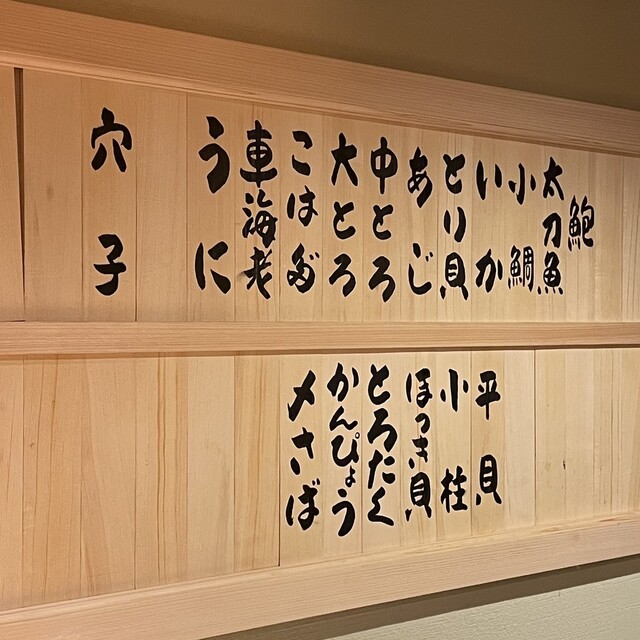 鮑
太刀魚
小鯛
いか
とり貝
あじ
中とろ
大とろ
こはだ
車海老
うに
穴子
平貝
小柱
ほっき貝
とろたく
かんぴょう
〆さば